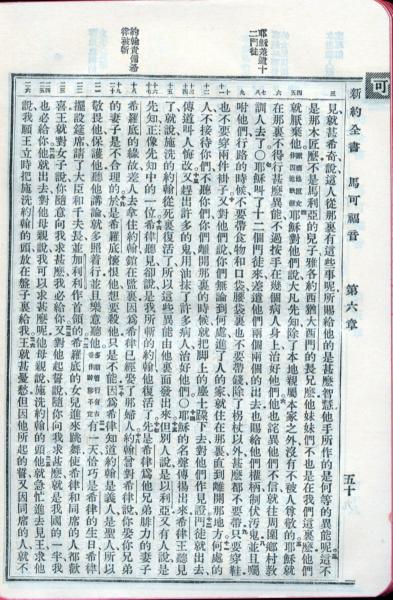 可
新約全書 馬可福音 第六章 五十
耶穌差遣十二門徒
約翰責備希律被斬
見就甚希奇說這人從那裏有這些事呢所賜給他的是甚麼智慧他手所作的是何等的異能呢這不
是那木匠麼不是馬利亞的兒子雅各約西猶大西門的長兄麼他妹妹們不也是在我們這裏麼他們
就厭棄他耶穌對他們說大凡先知除了本地親屬本家之外沒有不被人尊敬的耶穌就
在那裏不得行甚麼異能不過按手在幾個病人身上治好他們他也詫異他們不信就往周圍鄉村教
訓人去了〇耶穌叫了十二個門徒來差遣他們兩個兩個的出去也賜給他們權柄制伏汚鬼並且囑
咐他們行路的時候不要帶食物和口袋腰袋裏也不要帶錢除了柺杖以外甚麼都不要帶只要穿鞋
也不要穿兩件褂子又對他們說你們無論到何處進了人的家就住在那裏直到離開那地方何處的
人不接待你們不聽你們你們離開那裏的時候就把腳上的塵土跺下去對他們作見證門徒就出去
傳道叫人悔改又趕出許多的鬼用油抹了許多病人治好他們〇耶穌的名聲傳揚出來希律王聽見
了就說施洗的約翰從死裏復活了所以這些異能由他裏面發出來但別人說是以利亞又有人說是
先知正像先知中的一位希律聽見卻說是我所斬的約翰他復活了先是希律爲他兄弟腓力的妻子
希羅底的緣故差人去拿住約翰鎖在監裏因爲希律已經娶了那婦人約翰曾對希律說你娶你兄弟
的妻子是不合理的於是希羅底懷恨他想要殺他只是不能因爲希律知道約翰是義人是聖人所以
敬畏他保護他聽他講論就多照着行並且樂意聽他有一天恰巧是希律的生日希律
擺設筵席請了大臣和千夫長並加利利作首領的希羅底的女兒進來跳舞使希律和同席的人都歡
喜王就對女子說你隨意向我求甚麼我必給你又對他起誓說隨你向我求甚麼就是我國的一半我
也必給你他就出去對他母親說我可以求甚麼呢他母親說施洗約翰的頭他就急忙進去見王求他
說我願王立時把施洗約翰的頭放在盤子裏給我王就甚憂愁但因他所起的誓又因同席的人就不